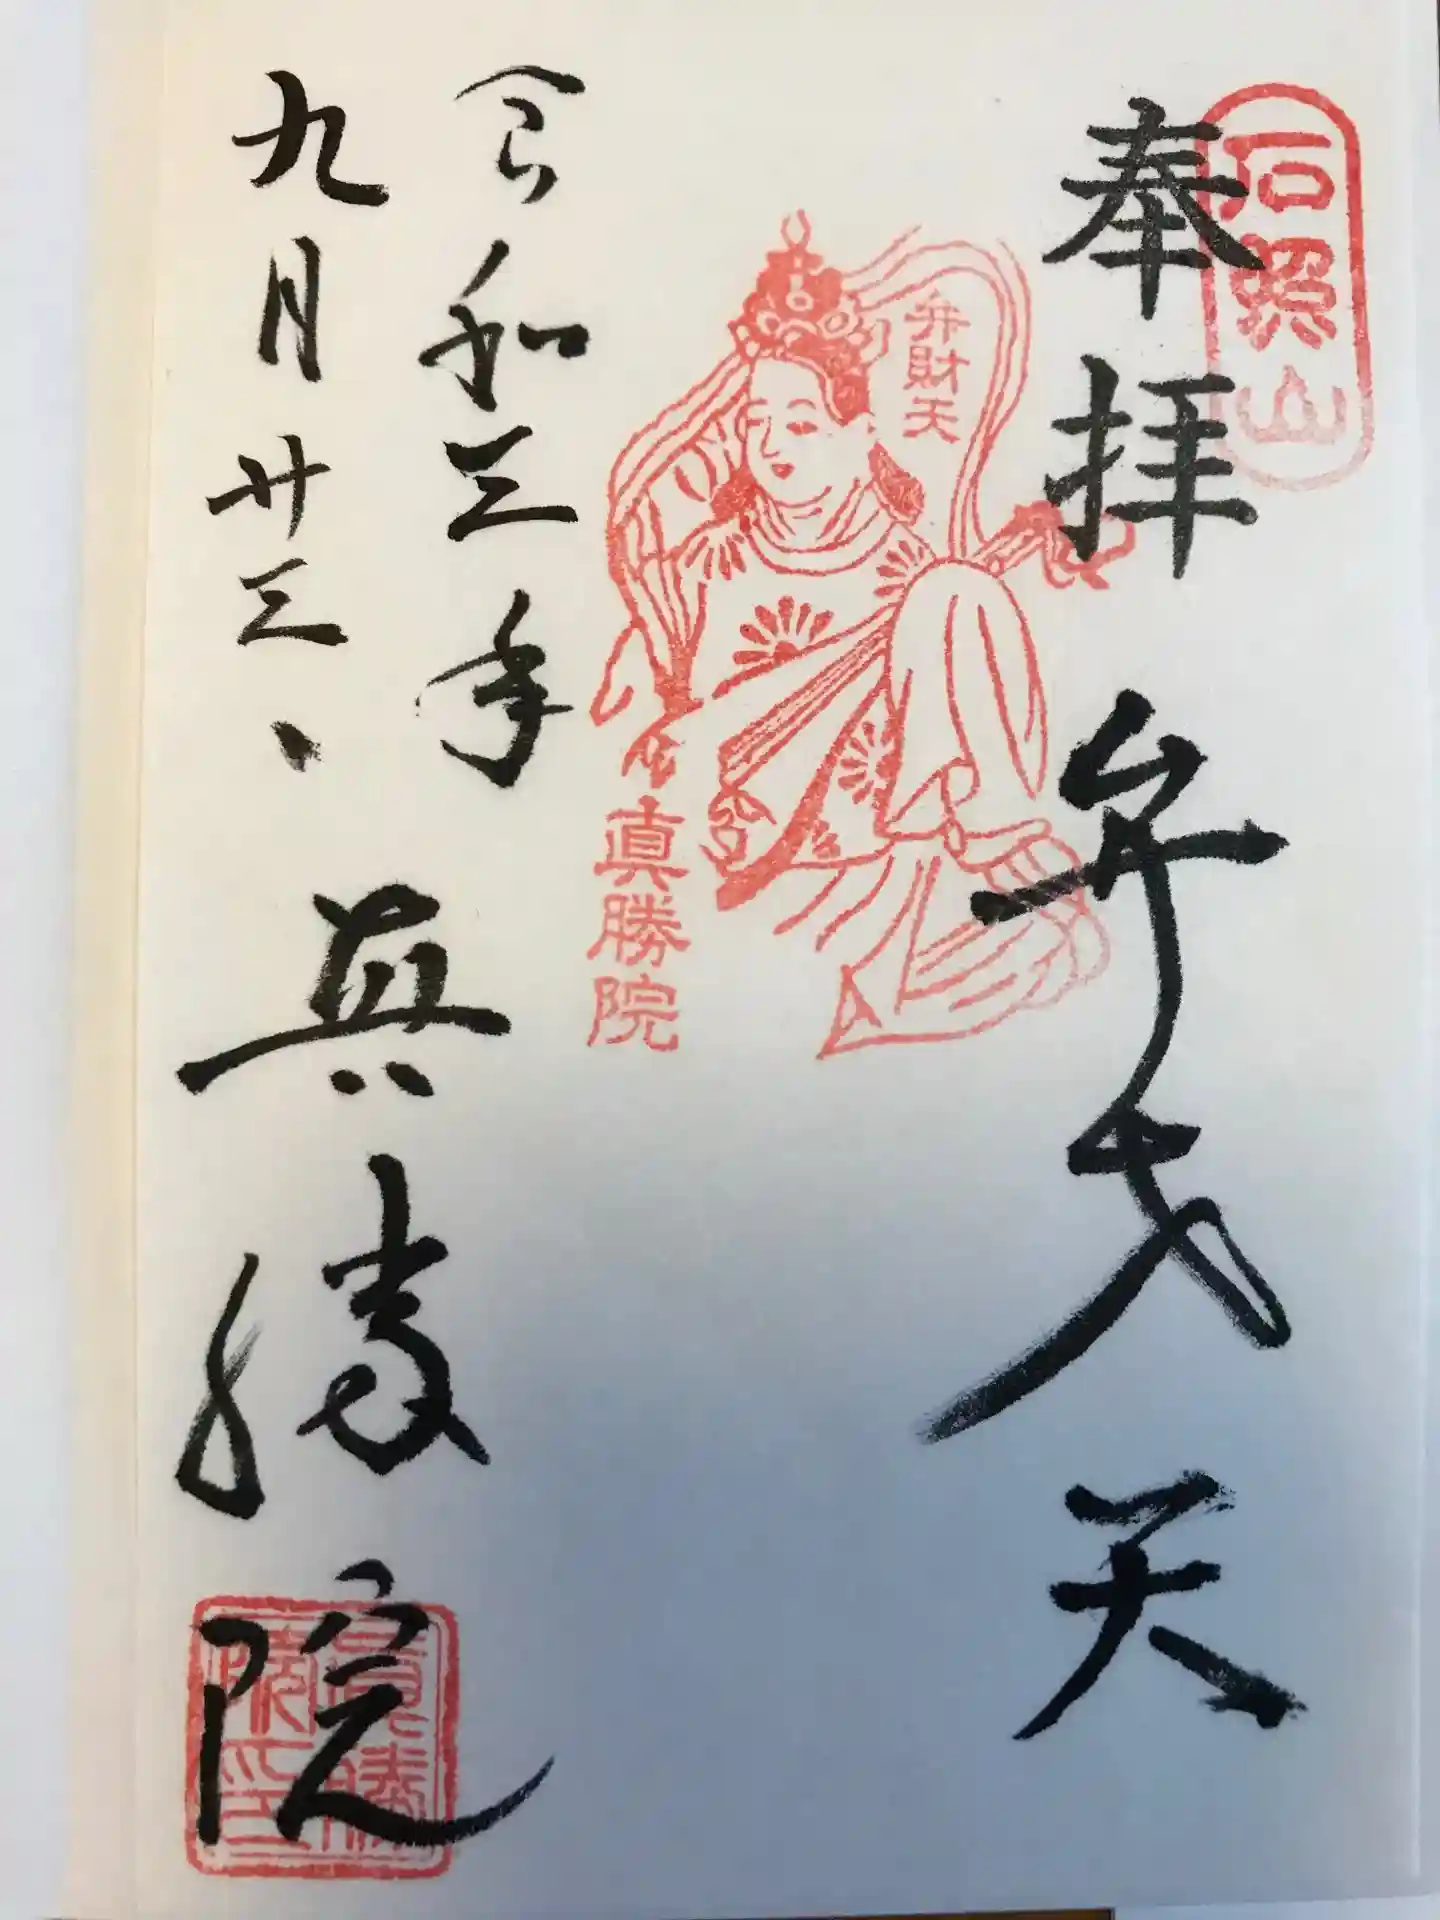 石照山
奉拝
弁才天
弁財天
眞勝院
令和三年
九月廿三日
眞勝院
眞勝院印